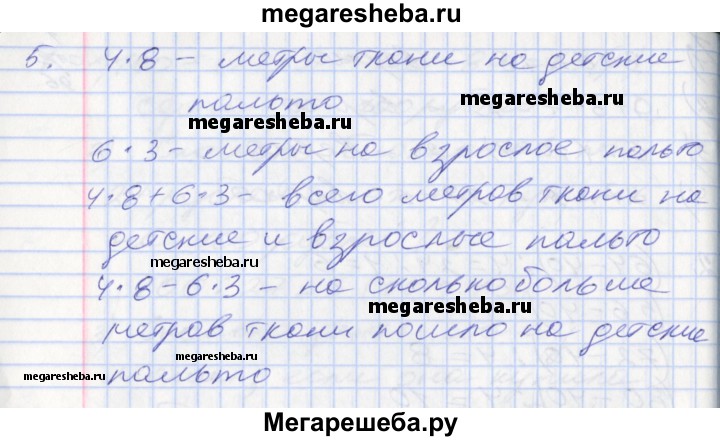 megaresheba.ru
5. 4·8 – метры ткани на детские
пальто
megaresheba.ru
megaresheba.ru
6·3 – метры на взрослое пальто
4·8+6·3 – всего метров ткани на
детские и взрослые пальто
megaresheba.ru
4·8–6·3 – на сколько больше
megaresheba.ru
метров ткани пошло на детские
megaresheba.ru
megaresheba.ru
пальто
Мегарешеба.ру